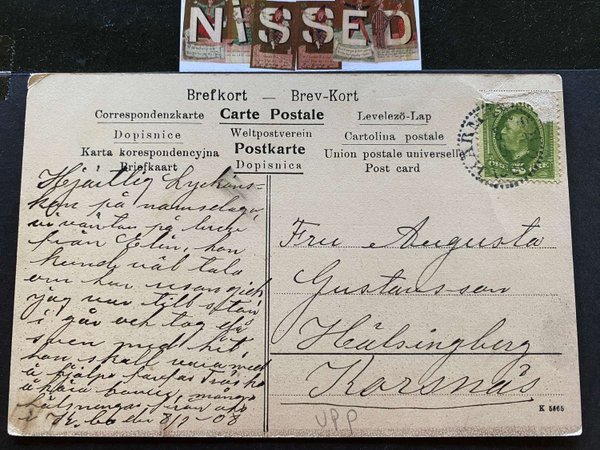 NiSSED
Brefkort — Brev-Kort
Correspondenzkarte Carte Postale Levelező-Lap
Dopisnice Weltpostverein Cartolina postale
Karta korespondencyjna Postkarte Union postale universelle
Briefkaart Dopisnica Post card
KARM
Hjärtlig Lycköns-
kan på namnsdagen,
vi väntar på bref
från Elin, hon
kunde väl tala
om hur
jag var till stan
i går och tog
sven med hit,
han skall vara med
å hjälpa
å kära
hälsningar från
8/2 - 08
Fru Augusta
Gustavsson
Hälsingberg
Korsnäs
K 5865
VPP